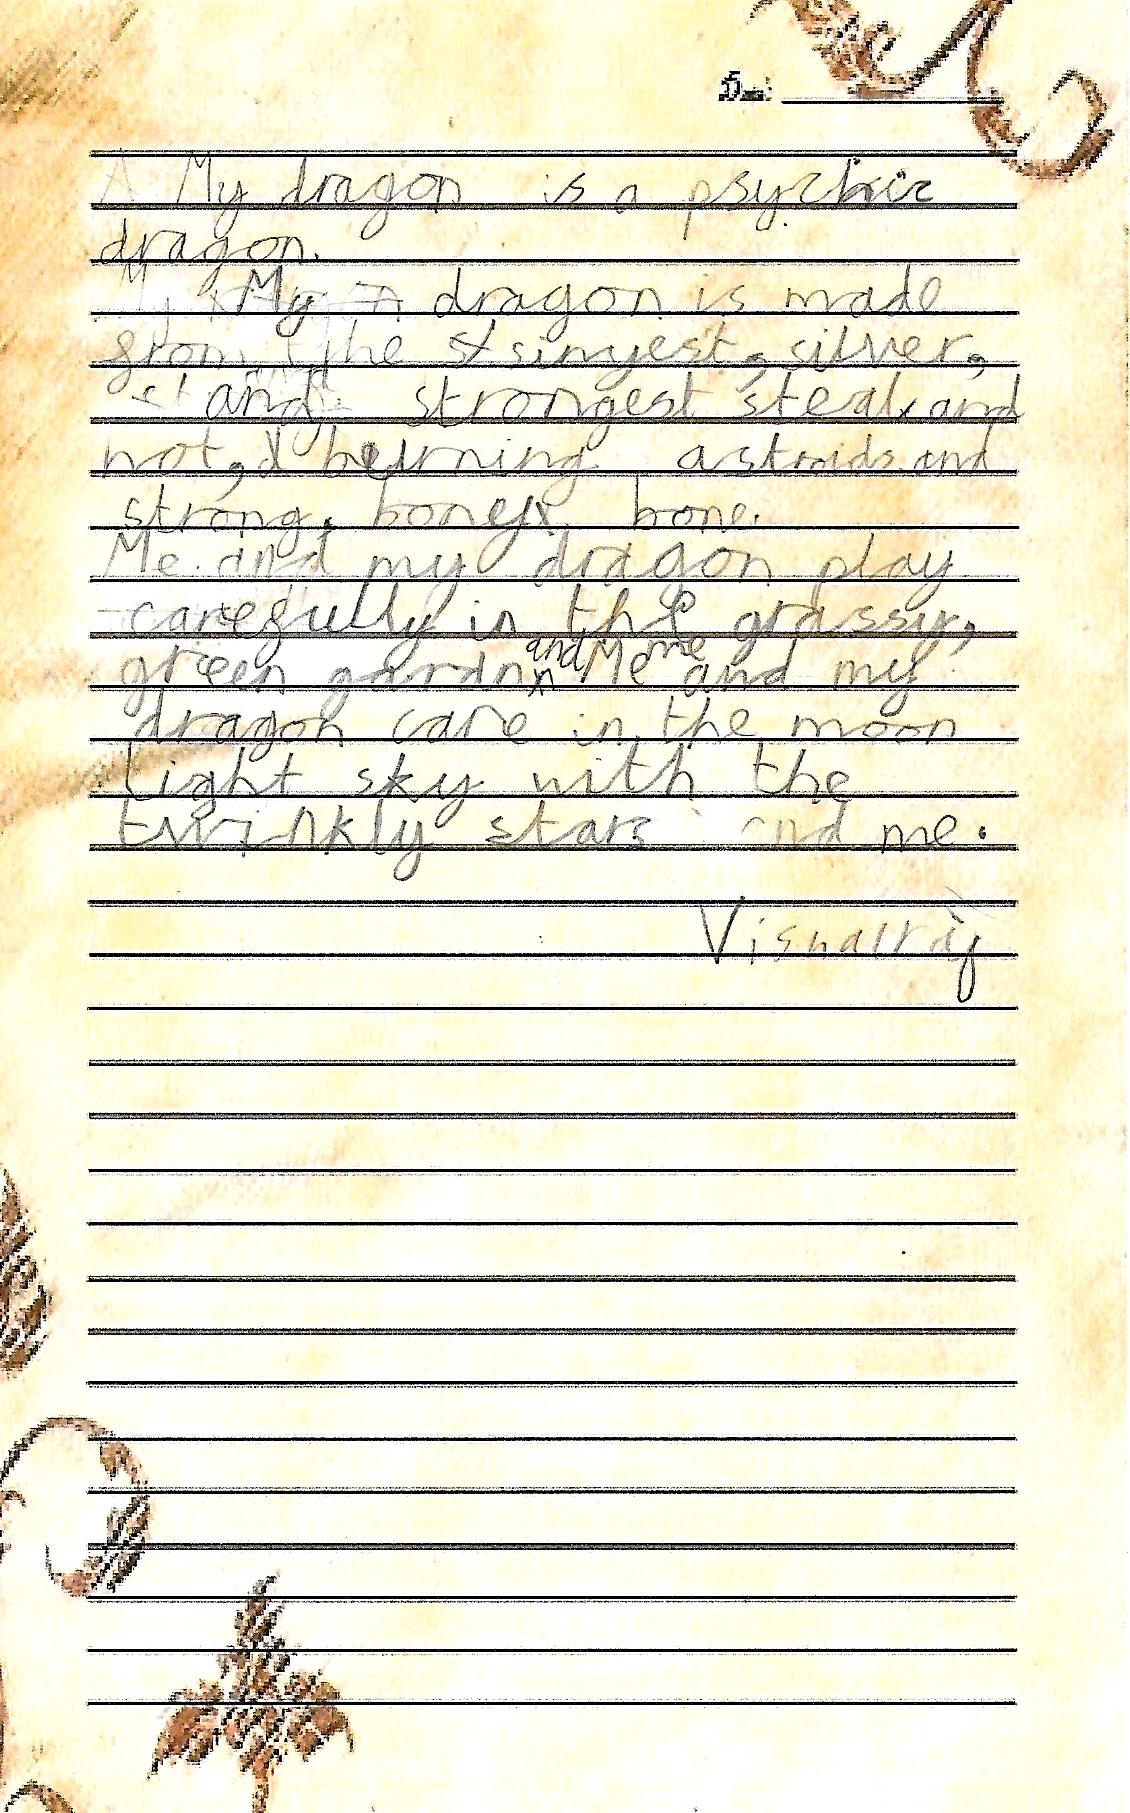 My dragon is a psychic
dragon.
My dragon is made
from the sinyest, silver,
and strongest steal and
hot, burning astroids and
strong, boney bone.
Me and my dragon play
carefully in the grassy,
green gardn and me and my
dragon care in the moon
light sky with the
twinkly stars and me.
Vishalraj